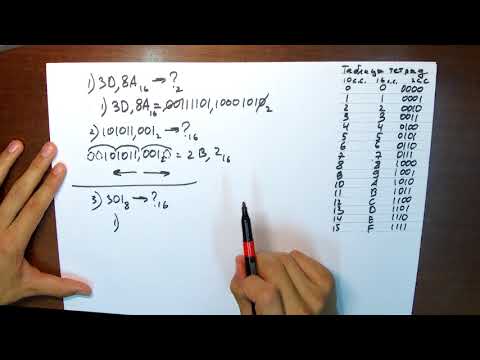 1) 3D,8A₁₆ → ?₂
1) 3D,8A₁₆ = 00111101,10001010₂
2) 101011,001₂ → ?₁₆
00101011,0010₂ = 2B,2₁₆
3) 301₈ → ?₁₆
1)
Таблица тетрад
10 с.с. 16 с.с. 2 с.с.
0 0 0000
1 1 0001
2 2 0010
3 3 0011
4 4 0100
5 5 0101
6 6 0110
7 7 0111
8 8 1000
9 9 1001
10 A 1010
11 B 1011
12 C 1100
13 D 1101
14 E 1110
15 F 1111